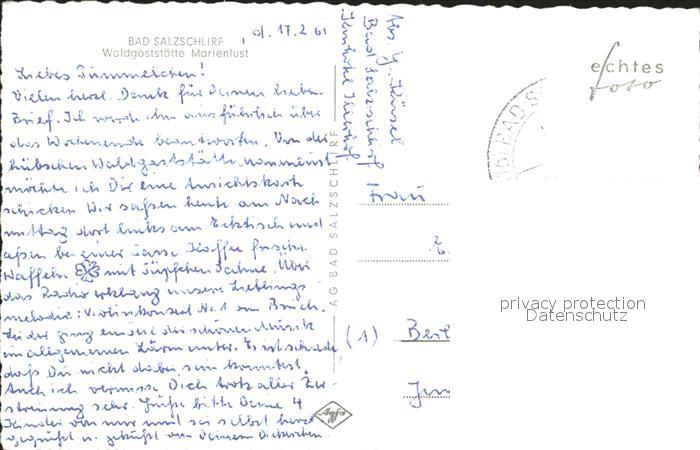 BAD SALZSCHLIRF
Waldgaststätte Marienlust
, d. 17.2.61
Liebes
Vielen herzl. Dank für Deinen lieben
Brief. Ich werde ihn ausführlich über
das Wochenende beantworten. Von der
hübschen Waldgaststätte
möchte ich Dir eine Ansichtskarte
schicken. Wir saßen heute am Nach
mittag dort links am Ecktisch und
aßen bei einer Tasse Kaffee frische
Waffeln mit Tüpfchen Sahne. Über
das Radio erklang unsere Lieblings
melodie: Violinkonzert Nr. 1 von Bruch.
Leider ging ein die schönen Musik
im allgemeinen Lärm unter. Es ist schade
daß Du nicht dabei sein konntest.
Auch ich vermisse Dich trotz aller Zer-
streuung sehr. Grüße bitte Deine 4
Kinder von mir und sei selbst herzl
gegrüßt u. geküßt von Deinem
Abs. G.
Bad Salzschlirf
Kurhotel
AG BAD SALZSCHLIRF
echtes
foto
BAD S
Frau
E.
(1) Berl
Agfa
privacy protection
Datenschutz